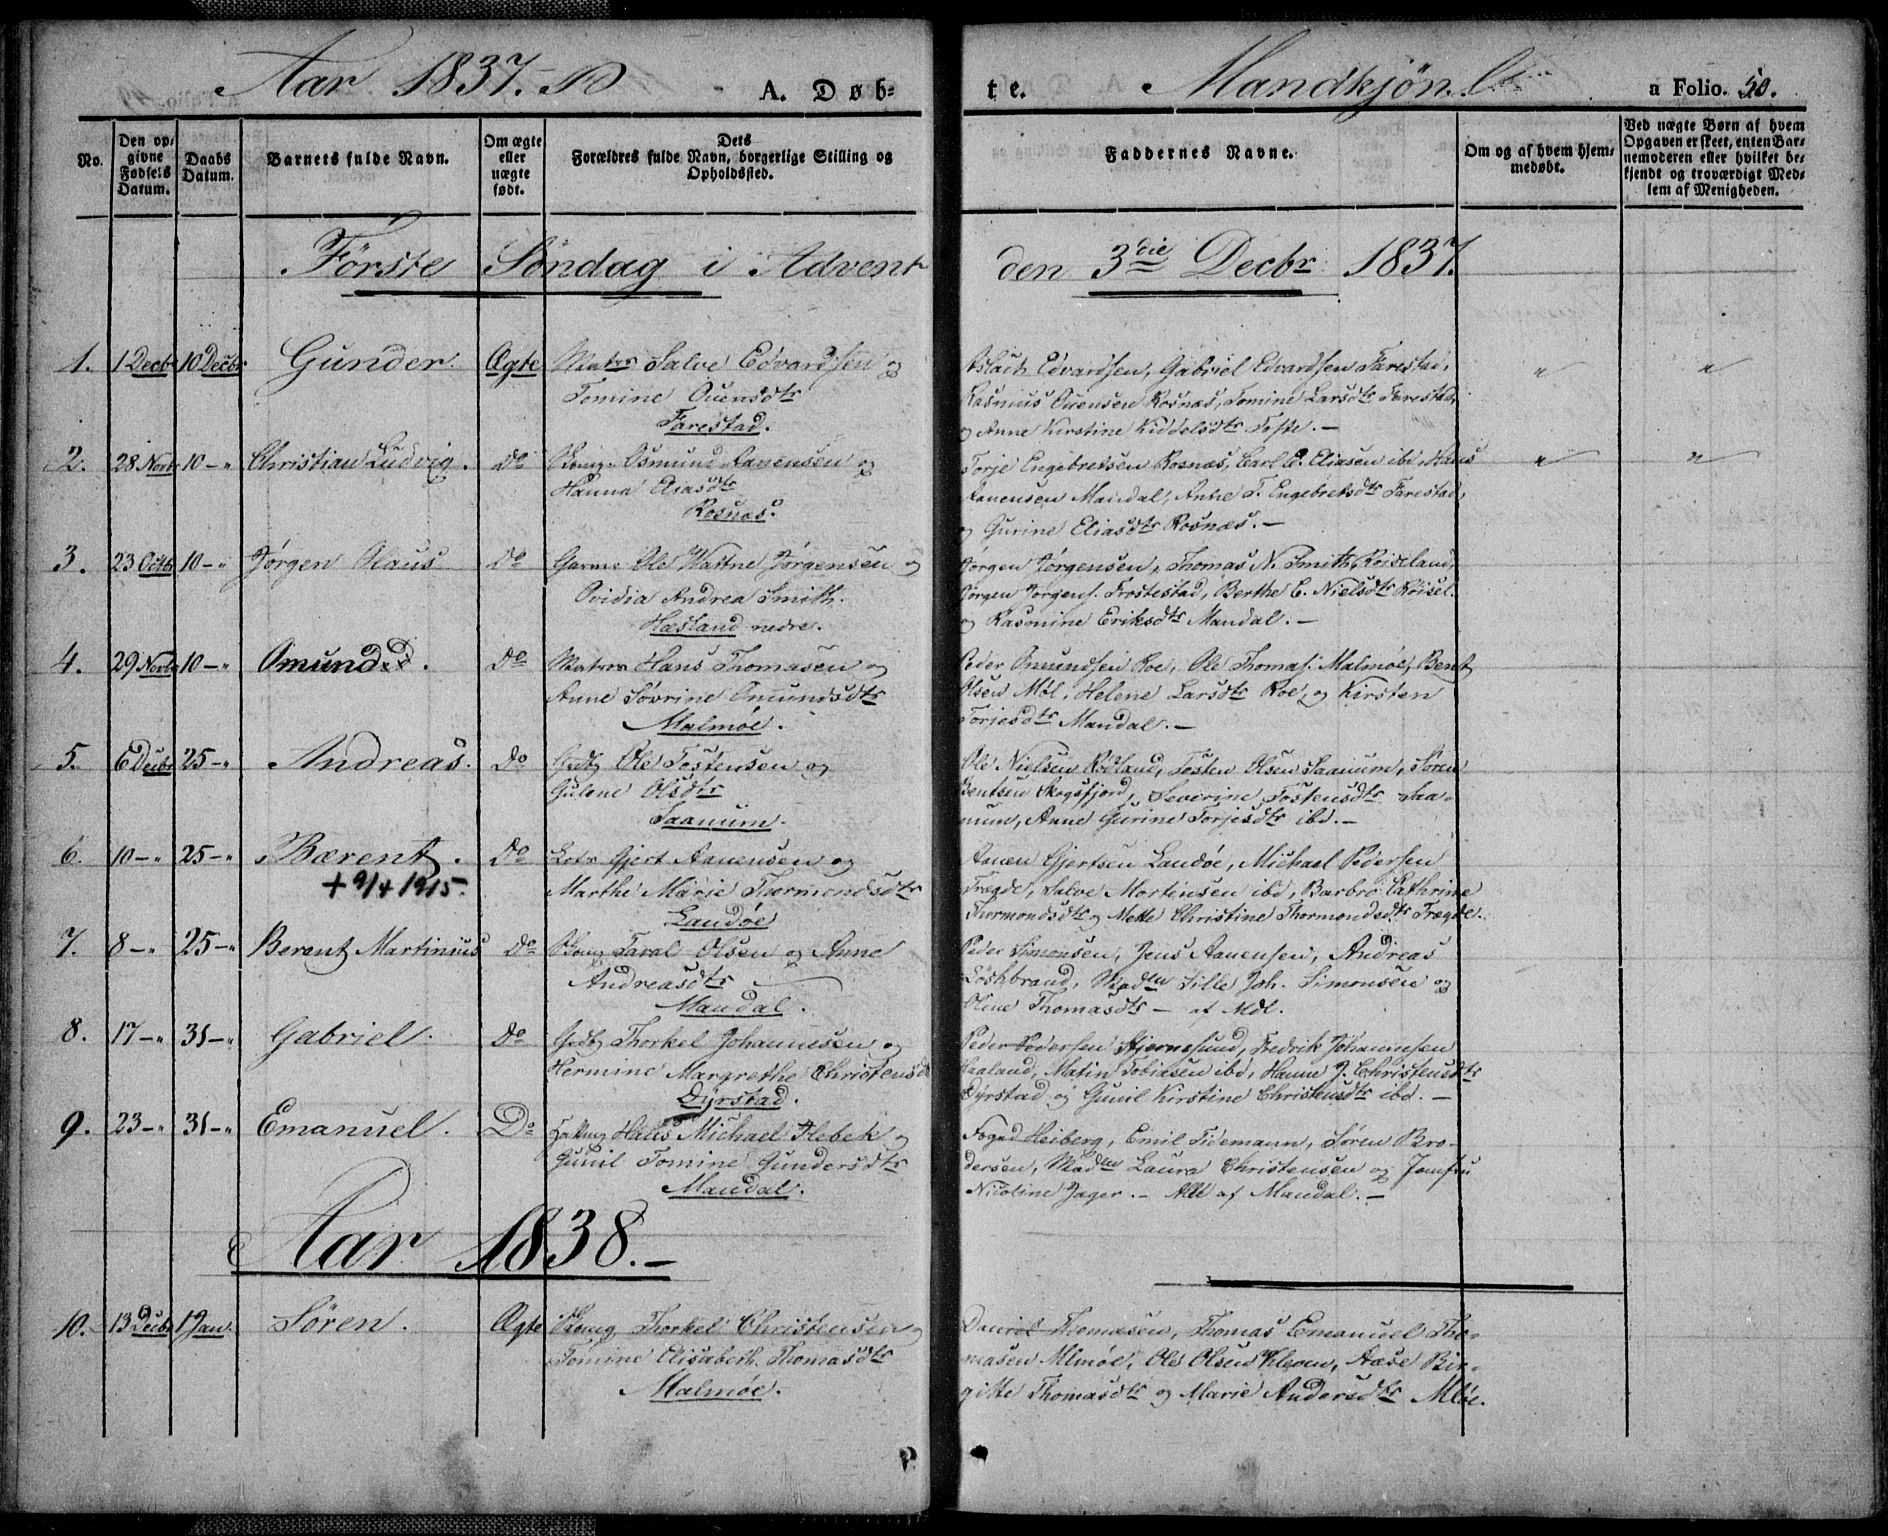 Aar 1837.
A. Døb-
te.
Mandkjøn.
a Folio. 50.
No.
Den op-
givne
Fødsels
Datum.
Daabs
Datum.
Barnets fulde Navn.
Om ægte
eller
uægte
født.
Dets
Forældres fulde Navn, borgerlige Stilling og
Opholdssted.
Faddernes Navne.
Om og af hvem hjem-
medøbt.
Ved uægte Børn af hvem
Opgaven er skeet, enten Bar-
nemoderen eller hvilket be-
kjendt og troværdigt Med-
lem af Menigheden.
Første Søndag i Advent
den 3die Decbr 1837.
1. 1 Decbr 10 Decbr Gunder. Ægte Matrs Salve Edvardsen og
Tomine Ouensdtr
Farestad.
Aslach Edvardsen, Gabriel Edvardsen Farestad,
Rasmus Ouensen Rosnæs, Tomine Larsdtr Farestad,
og Anne Kirstine Kiddelsdtr Tofte. —
" "
2. 28 Novbr 10 — " Christian Ludvig. Do Osmund Aanensen og
Hanna Eliasdtr
Rosnæs.
Torje Engebretsen Rosnæs, Carl E. Eliasen ibd, Hans
Aanensen Mandal, Anne T. Engebretsdtr Farestad,
og Gurine Eliasdtr Rosnæs. —
" "
3. 23 Octbr 10 — " Jørgen Olaus Do Ole Jørgensen og
Ovidia Andrea Smith.
Hæsland nedre.
Jørgen Jørgensen, Thomas N. Smith, Røiseland,
Jørgen Jørgens. Frøstestad, Berthe E. Nielsdtr Røisel.
og Rasmine Eriksdtr Mandal. —
4. 29 Novbr 10 — " Omund. Do Matros Hans Thomasen og
Anne Sovrine Omundsdtr
Malmøe.
Peder Omundsen Roe, Ole Thomas. Malmøe, Bent
Olsen Mdl, Helene Larsdtr Roe, og Kirsten
Torjesdtr Mandal. —
5. 6 Decbr 25 — " Andreas. Do Ole Tostensen og
Gulene Olsdtr
Saanum.
Ole Nielsen Rødland, Tosten Olsen Saanum, Søren
Bentsen Skogsfjord, Severine Tostensdtr Saa-
num, Anne Gurine Torjesdtr ibd. —
6. 10 — " 25 — " Bærent. Do Lots Gjert Aanensen og
+ 9/4 1915.
Marthe Marie Thormondsdtr
Landøe
Aanen Gjertsen Landøe, Michael Pedersen
Trægde, Salve Mortensen ibd, Barbro Cathrine
Thormondsdtr og Mette Christine Thormondsdtr Trægde.
7. 8 — " 25 — " Berent Martinius Do Taral Olsen og Anne
Andreasdtr
Mandal.
Peder Simonsen, Jens Aanensen, Andreas
Løshbrand, Madm Sille Joh. Simonsen og
Oline Thomasdtr — af Mdl.
8. 17 — " 31 — " Gabriel. Do Thorkel Johannesen og
Hermine Margrethe Christensdtr
Dyrstad.
Peder Pedersen Hjernesund, Fredrik Johannesen
Haaland, Matin Tobiasen ibd, Hanne J. Christensdtr
Dyrstad og Gunil Kirstine Christensdtr ibd. —
9. 23 — " 31 — " Emanuel. Do Hans Michael Flebek og
Gunil Tomine Gundersdtr
Mandal.
Foged Heiberg, Emil Tidemann, Søren Bro-
dersen, Madm Laura Christensen og Jomfru
Nicoline Jager. — Alle af Mandal. —
Aar 1838. —
10. 13 Decbr 1 Jan. Søren. Ægte Thorkel Christensen og
Tomine Elisabeth Thomasdtr
Malmøe.
Daniel Thomasen, Thomas Emanuel Tho-
masen Mlmøe, Ole Olsen Kleven, Aase Bir-
gitte Thomasdtr og Marie Andersdtr Mløe.